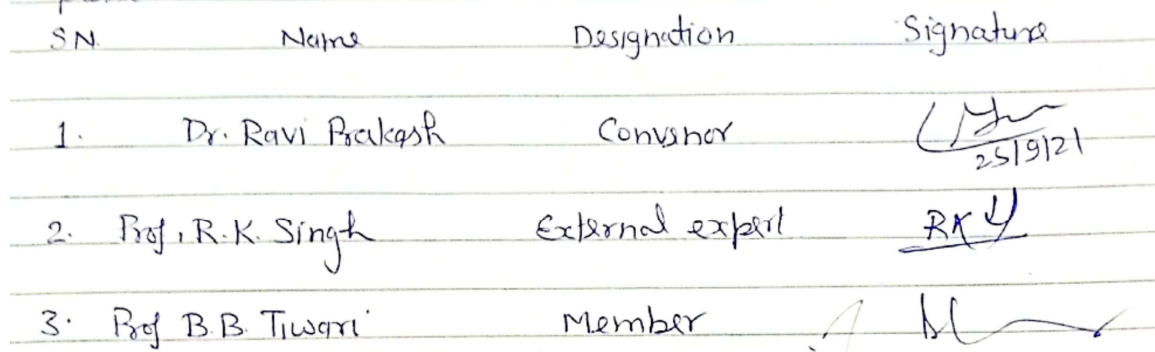 SN. Name Designation Signature
1. Dr. Ravi Prakash Convenor
25/9/21
2. Prof. R.K. Singh External expert RK
3. Prof B.B. Tiwari Member